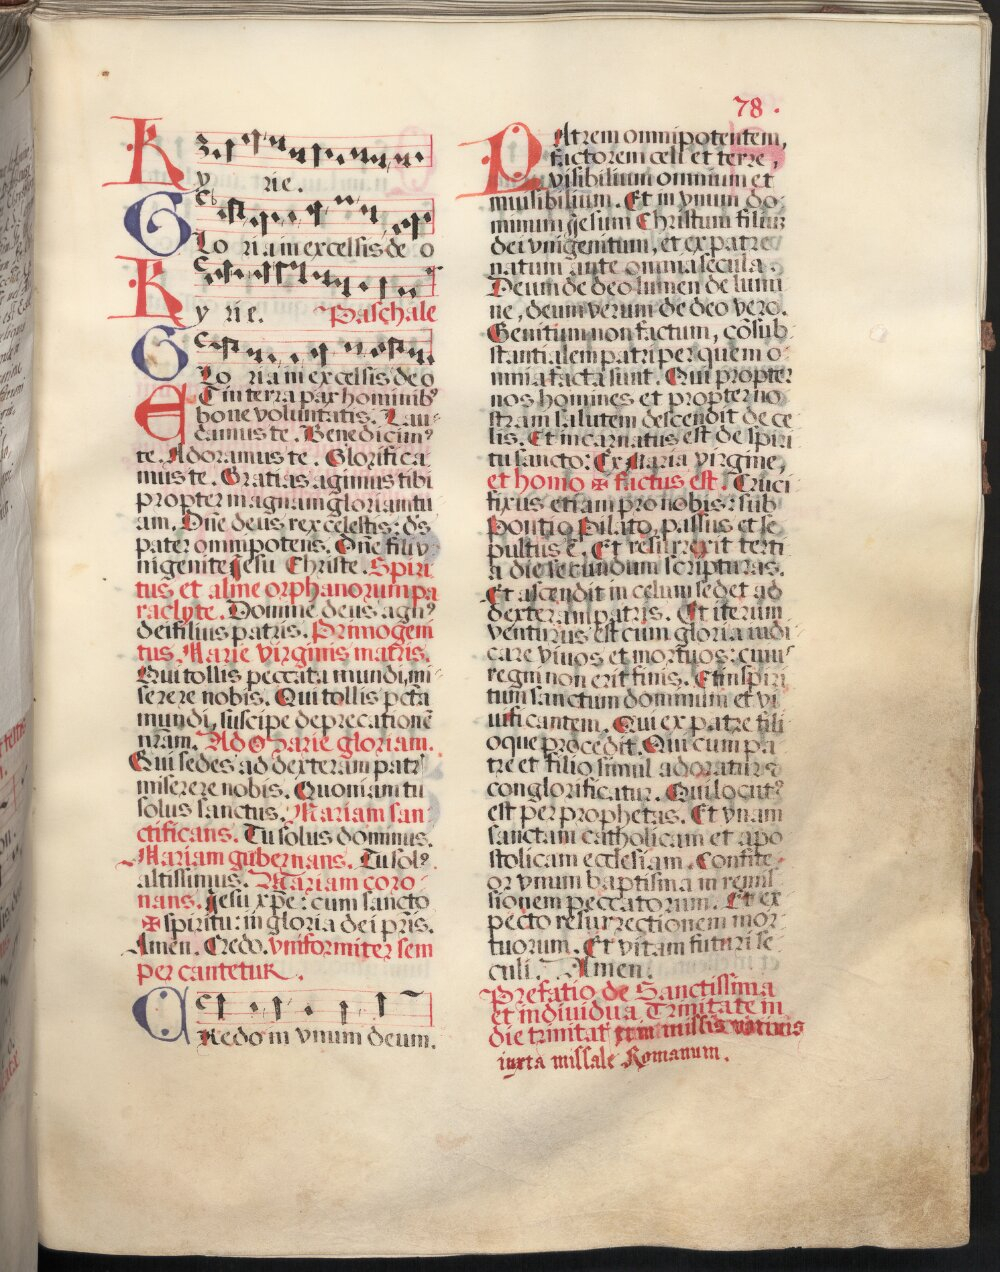 78.
Ky rie.
Glo ria in excelsis de o
Ky rie. Paschale
Glo ria in excelsis de o
Et in terra pax hominib9
bone voluntatis. Lau-
damus te. Benedicim9
te. Adoramus te. Glorifica
mus te. Gratias agimus tibi
propter magnam gloriam tu
am. Dñe deus rex celestis: ds
pater omnipotens. Dñe fili v
nigenite Jesu Christe. Spiri
tus et alme orphanorum pa
raclyte. Domine deus agn9
dei filius patris. Primogeni
tus Marie virginis matris.
Qui tollis peccata mundi, mi
serere nobis. Qui tollis pcta
mundi, suscipe deprecationē
nr̄am. Ad Marie gloriam.
Qui sedes ad dexteram patr
miserere nobis. Quoniam tu
solus sanctus. Mariam san
ctificans. Tu solus dominus.
Mariam gubernans. Tu sol9
altissimus. Mariam coro-
nans. Jesu xp̄e: cum sancto
✠ spiritu: in gloria dei pr̄is.
Amen. Credo. vniformiter sem
per cantetur.
Credo in vnum deum.
Patrem omnipotentem,
factorem celi et terre,
visibilium omnium et
inuisibilium. Et in vnum do-
minum Jesum Christum filiū
dei vnigenitum, et ex patre
natum ante omnia secula.
Deum de deo lumen de lumi
ne, deum verum de deo vero.
Genitum non factum, cōsub-
stantialem patri per quem o-
mnia facta sunt. Qui propter
nos homines et propter no
stram salutem descendit de ce
lis. Et incarnatus est de spiri
tu sancto: Ex Maria virgine,
et homo ✠ factus est. Cruci
fixus etiam pro nobis: sub
Pontio Pilato, passus et se
pultus ē. Et resurrexit terti
a die secundum scripturas.
Et ascendit in celum sedet ad
dexteram patris. Et iterum
venturus est cum gloria iudi-
care viuos et mortuos: cuius
regni non erit finis. Et in spiri
tum sanctum dominum et vi
uificantem. Qui ex patre fili
oque procedit. Qui cum pa
tre et filio simul adoratur
conglorificatur. Qui locut9
est per prophetas. Et vnam
sanctam catholicam et apo
stolicam ecclesiam. Confite-
or vnum baptisma in remis
sionem peccatorum. Et ex
pecto resurrectionem mor-
tuorum. Et vitam futuri se-
culi. Amen.
Prefatio de Sanctissima
et individua Trinitate in
die trinitat
iuxta missale Romanum.